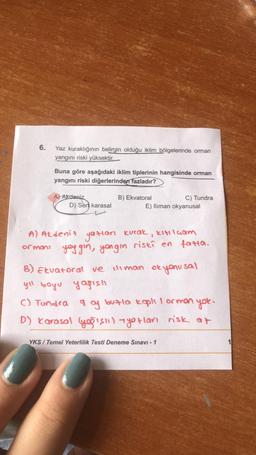 6. Yaz kuraklığının belirgin olduğu iklim bölgelerinde orman
yangını riski yüksektir.
Buna göre aşağıdaki iklim tiplerinin hangisinde orman
yangını riski diğerlerinden fazladır?
A) Akdeniz B) Ekvatoral C) Tundra
D) Sert karasal E) Ilıman okyanusal
A) Akdeniz yazları kurak, kızılçam
ormanı yaygın, yangın riski en fazla.
B) Ekvatoral ve ılıman okyanusal
yıl boyu yağışlı
C) Tundra 9 ay buzla kaplı orman yok.
D) Karasal (yağışlı) → yazları risk az
YKS / Temel Yeterlilik Testi Deneme Sınavı - 1
1